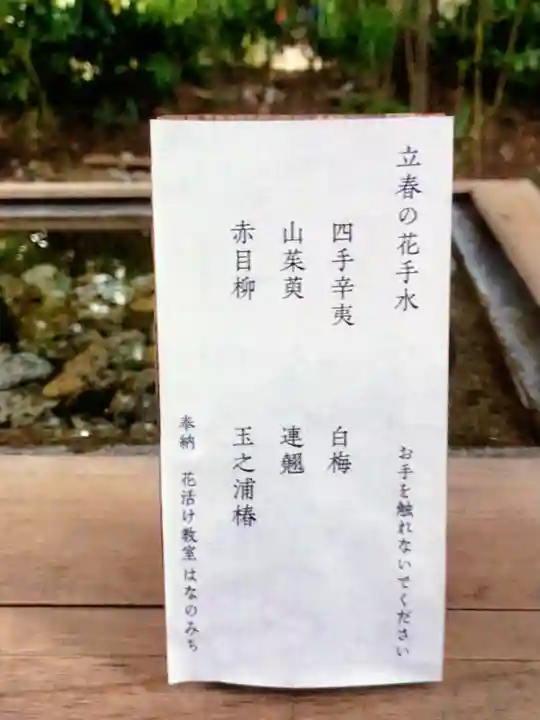 立春の花手水
お手を触れないでください
四手辛夷　白梅
山茱萸　連翹
赤目柳　玉之浦椿
奉納　花活け教室 はなのみち